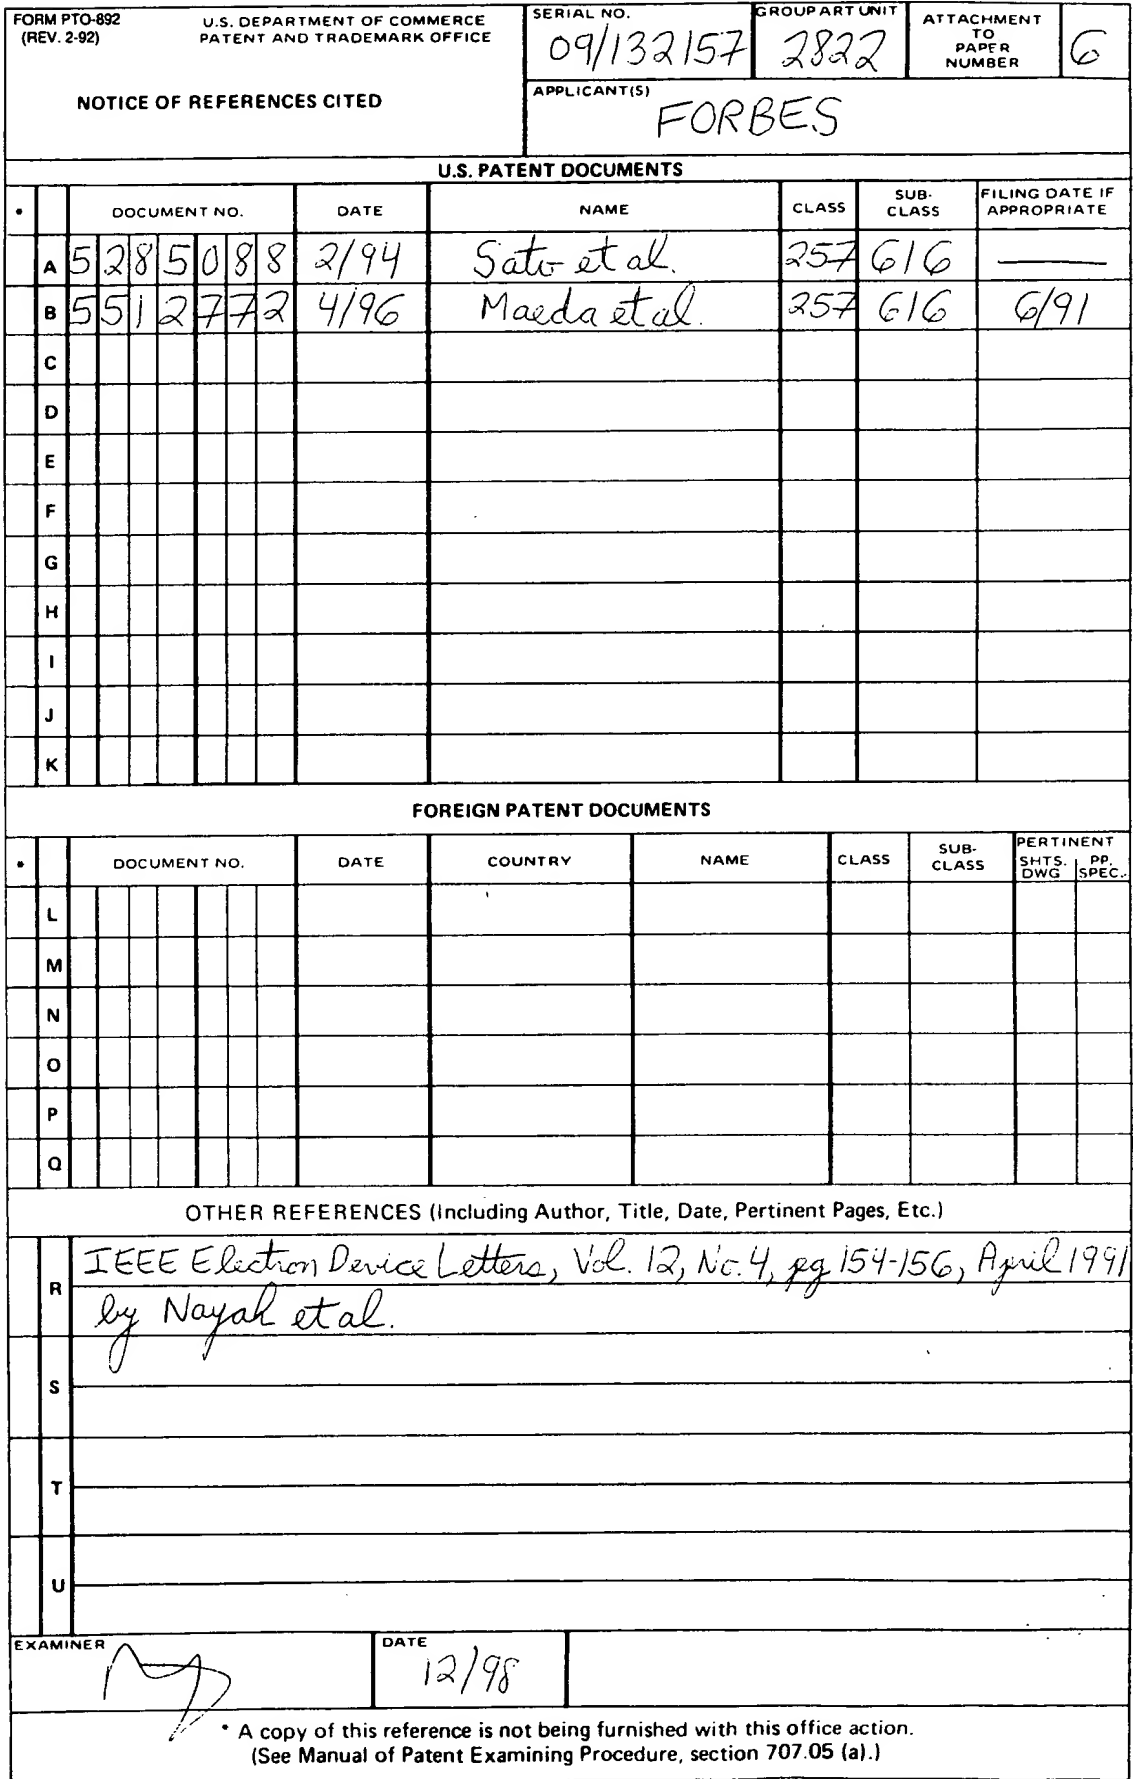 FORM PTO-892
(REV. 2-92)
U.S. DEPARTMENT OF COMMERCE
PATENT AND TRADEMARK OFFICE
NOTICE OF REFERENCES CITED
SERIAL NO.
09/132157
GROUP ART UNIT
2822
ATTACHMENT
TO
PAPER
NUMBER
6
APPLICANT(S)
FORBES
U.S. PATENT DOCUMENTS
* DOCUMENT NO. DATE NAME CLASS SUB-CLASS FILING DATE IF APPROPRIATE
A 5285088 2/94 Sato et al. 257 616 —
B 5512772 4/96 Maeda et al. 257 616 6/91
C
D
E
F
G
H
I
J
K
FOREIGN PATENT DOCUMENTS
* DOCUMENT NO. DATE COUNTRY NAME CLASS SUB-CLASS PERTINENT SHTS. DWG PP. SPEC.
L
M
N
O
P
Q
OTHER REFERENCES (Including Author, Title, Date, Pertinent Pages, Etc.)
R IEEE Electron Device Letters, Vol. 12, No. 4, pg 154-156, April 1991
by Nayak et al.
S
T
U
EXAMINER
DATE
12/98
* A copy of this reference is not being furnished with this office action.
(See Manual of Patent Examining Procedure, section 707.05 (a).)